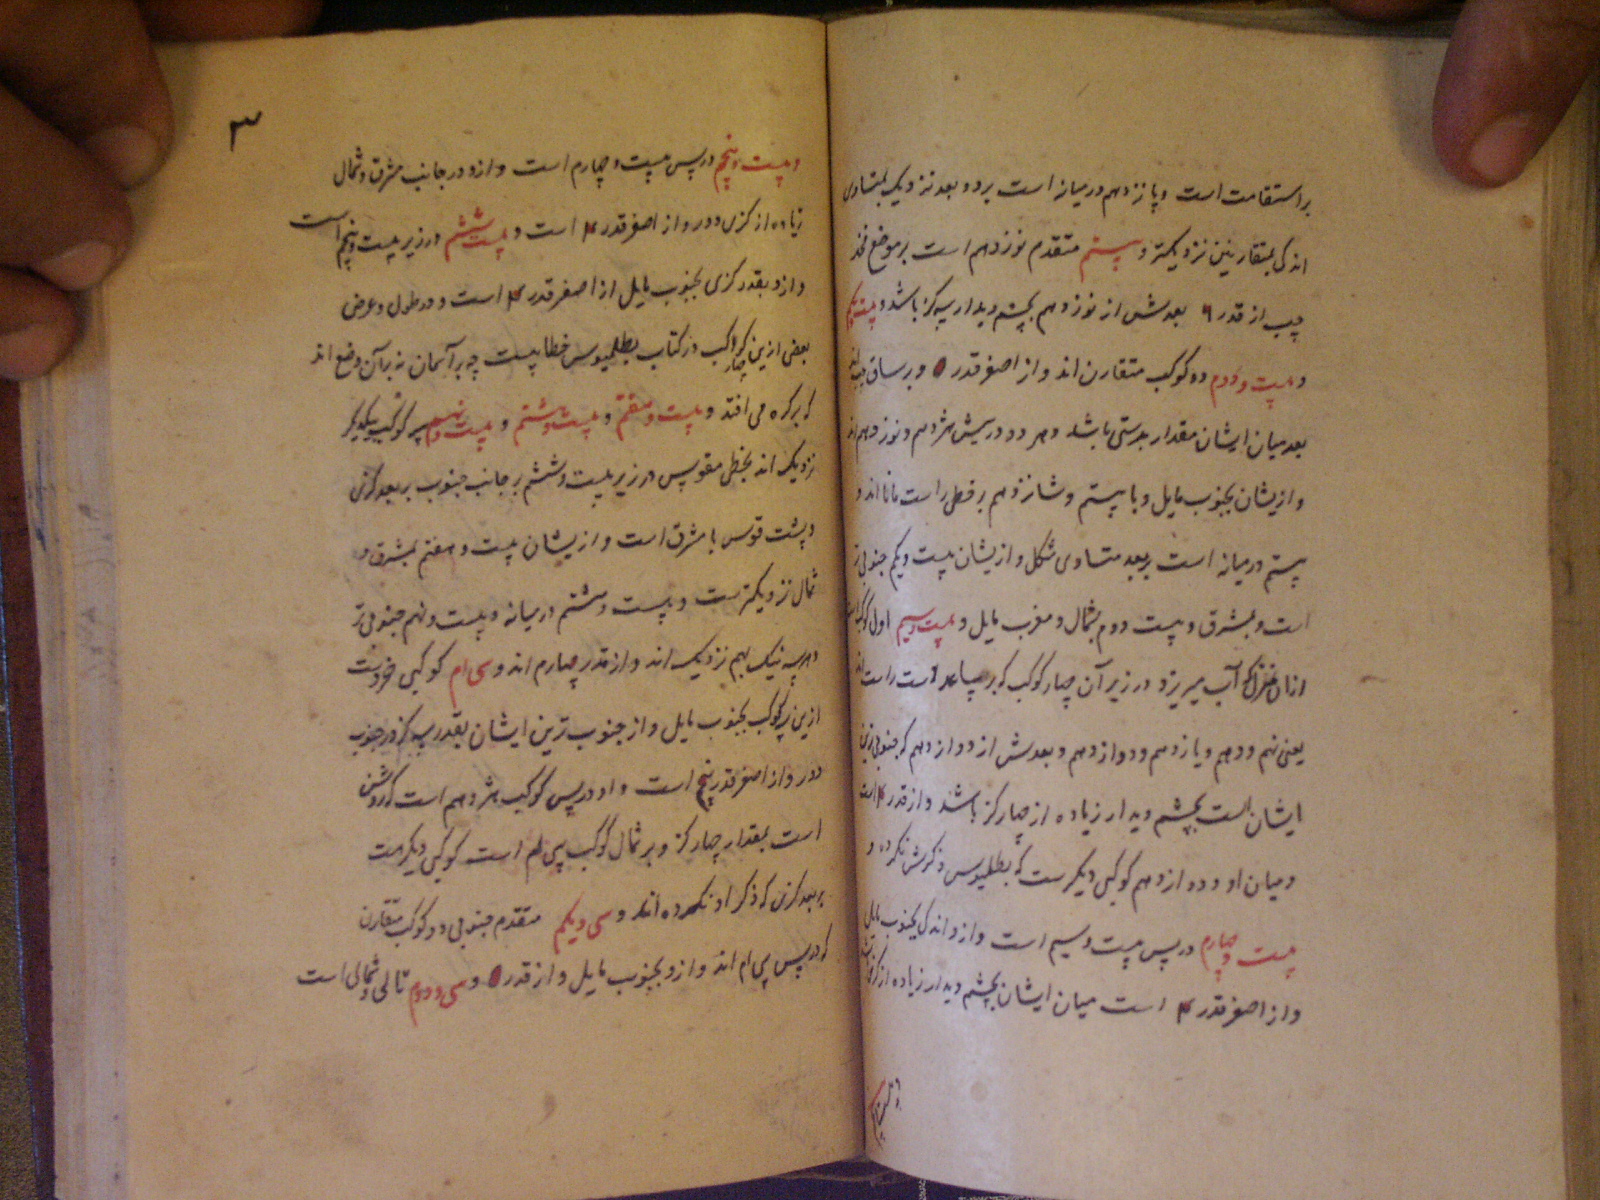 بر استقامت است و پانزدهم در میانه است بر دو بعد نزدیک بمتساوی
اندکی بمتقارنین نزدیکتر و بیستم متقدم نوزدهم است بر موضع فخذ
چپ از قدر ۶ بعدش از نوزدهم بچشم دیدار سه گز باشد و بیست و یکم
و بیست و دوم دو کوکب متقارن اند و از اصغر قدر ۵ و بر ساق
بعد میان ایشان مقدار بدستی باشد و هر دو در پیش هژدهم و نوزدهم اند
و ازیشان بجنوب مایل و با بیستم و شانزدهم بر خطی راست مانا اند و
بیستم در میانه است بر بعد متساوی شکل و ازیشان بیست و یکم جنوبی‌تر
است و بمشرق و بیست و دوم بشمال و مغرب مایل و بیست و سیم اول کوکب است
از آن که آب میریزد در زیر آن چهار کوکب که بر ساعد دست راست اند
یعنی نهم و دهم و یازدهم و دوازدهم و بعدش از دوازدهم که جنوبی‌ترین
ایشان است بچشم دیدار زیاده از چهار گز باشد و از قدر ۴ است
و میان او و دوازدهم کوکبی دیگرست که بطلمیوس ذکرش نکرده و
بیست و چهارم در پس بیست و سیم است و ازو اندکی بجنوب مایل
و از اصغر قدر ۴ است میان ایشان بچشم دیدار زیاده از گزی
و بیست و پنجم
۳
و بیست و پنجم در پس بیست و چهارم است و ازو در جانب مشرق و شمال
زیاده از گزی دور و از اصغر قدر ۴ است و بیست و ششم در زیر بیست و پنجم است
و ازو بقدر گزی بجنوب مایل از اصغر قدر ۴ است و در طول و عرض
بعضی ازین کواکب در کتاب بطلمیوس خطا هست چه بر آسمان نه بر آن وضع اند
که بر کره می افتد و بیست و هفتم و بیست و هشتم و بیست و نهم سه کوکب بیکدیگر
نزدیک اند بخطی مقوس در زیر بیست و ششم بر جانب جنوب بر بعد گزی
و پشت قوس با مشرق است و ازیشان بیست و هفتم بمشرق و
شمال نزدیکترست و بیست و هشتم در میانه و بیست و نهم جنوبی‌تر
و هر سه نیک بهم نزدیک اند و از قدر چهارم اند و سی ام کوکبی
ازین سه کوکب بجنوب مایل و از جنوب ترین ایشان بقدر سه گز در جنوب
دور و از اصغر قدر پنج است و او در پس کوکب هژدهم است که روشن
است بمقدار چهار گز و بر شمال کوکب سی ام است کوکبی دیگرست
بر بعد گزی که ذکر او نکرده اند و سی و یکم متقدم جنوبی دو کوکب متقارن
که در پس سی ام اند و ازو بجنوب مایل و از قدر ۵ و سی و دوم تالی و شمالی است